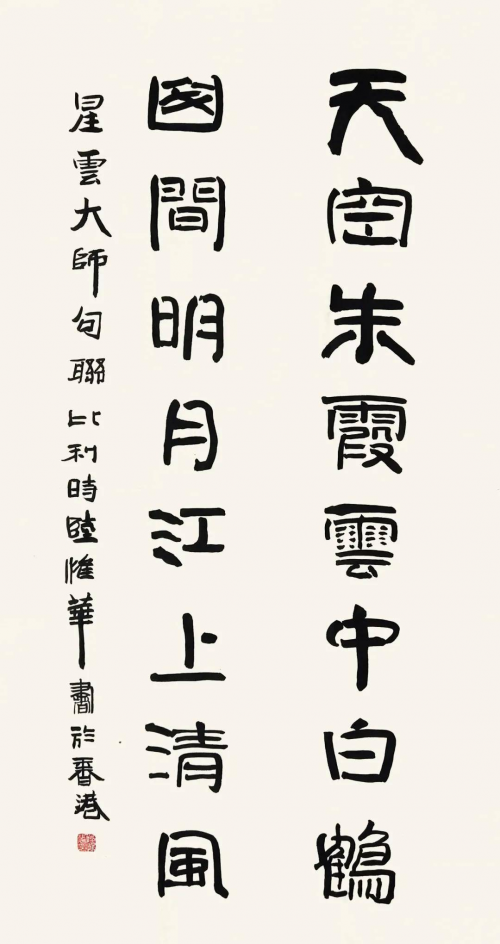 天空朱霞雲中白鶴
囪間明月江上清風
星雲大師句聯比利時陸惟華書於香港